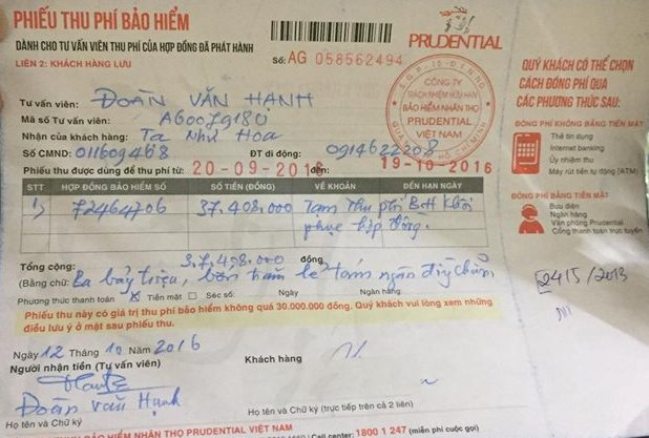 PHIẾU THU PHÍ BẢO HIỂM
DÀNH CHO TƯ VẤN VIÊN THU PHÍ CỦA HỢP ĐỒNG ĐÃ PHÁT HÀNH
LIÊN 2: KHÁCH HÀNG LƯU
Số: AG 058562494
PRUDENTIAL
CÔNG TY
TRÁCH NHIỆM HỮU HẠN
BẢO HIỂM NHÂN THỌ
PRUDENTIAL
VIỆT NAM
QUÝ KHÁCH CÓ THỂ CHỌN
CÁCH ĐÓNG PHÍ QUA
CÁC PHƯƠNG THỨC SAU:
ĐÓNG PHÍ KHÔNG BẰNG TIỀN MẶT
Thẻ tín dụng
Internet banking
Ủy nhiệm thu
Máy rút tiền tự động (ATM)
ĐÓNG PHÍ BẰNG TIỀN MẶT
Bưu điện
Ngân hàng
Văn phòng Prudential
Cổng thanh toán trực tuyến
Tư vấn viên: ĐOÀN VĂN HẠNH
Mã số Tư vấn viên: A60079180
Nhận của khách hàng: Tạ Như Hoa
Số CMND: 011609468 ĐT di động: 0914622208
Phiếu thu được dùng để thu phí từ: 20-09-2016 đến: 19-10-2016
STT HỢP ĐỒNG BẢO HIỂM SỐ SỐ TIỀN (ĐỒNG) VỀ KHOẢN ĐẾN HẠN NGÀY
1) 72464706 37.408.000 Tạm thu phí BH khôi
phục hợp đồng.
Tổng cộng: 37.408.000 đồng
(Bằng chữ: Ba bảy triệu, bốn trăm lẻ tám ngàn đồng chẵn
Phương thức thanh toán X Tiền mặt Séc số: Ngày Ngân hàng:
Phiếu này có giá trị thu phí bảo hiểm không quá 30.000.000 đồng. Quý khách vui lòng xem những
điều lưu ý ở mặt sau phiếu thu.
52415/2013
Ngày 12 Tháng 10 Năm 2016
Người nhận tiền (Tư vấn viên) Khách hàng
Đoàn Văn Hạnh
Họ tên và Chữ ký Họ tên và Chữ ký (trực tiếp trên cả 2 liên)
BẢO HIỂM NHÂN THỌ PRUDENTIAL VIỆT NAM
Call center: 1800 1 247 (miễn phí cuộc gọi)